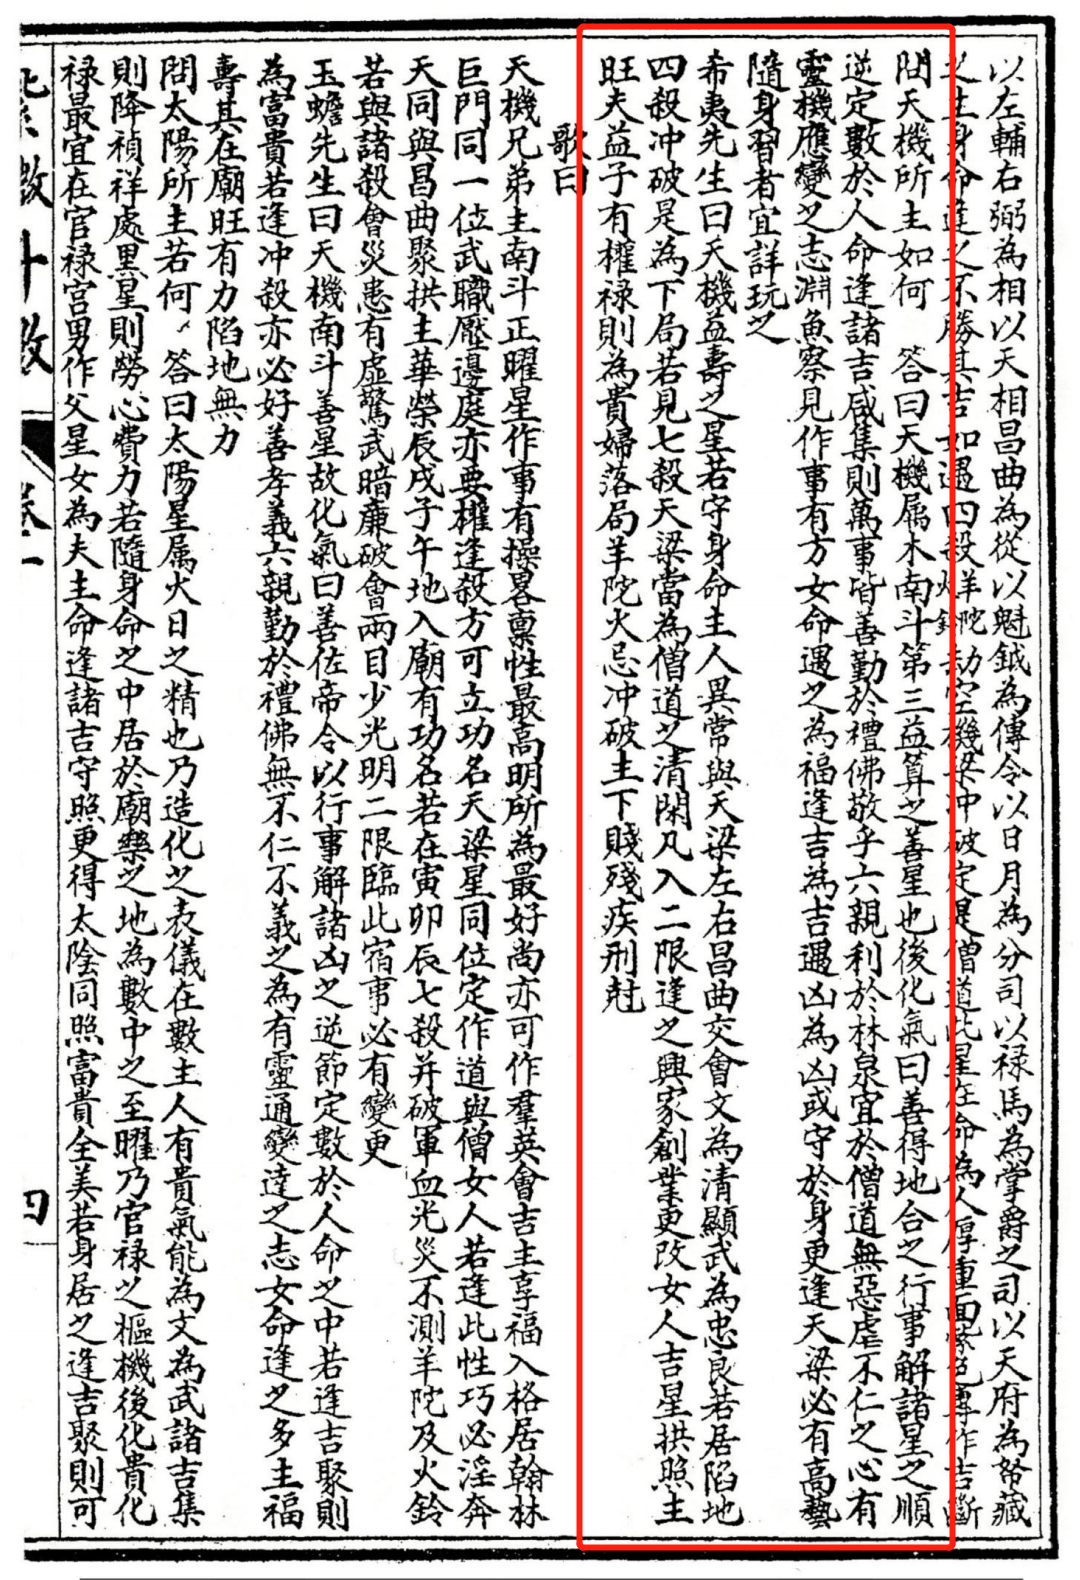 以左輔右弼為相以天相昌曲為從以魁鉞為傳令以日月為分司以禄馬為掌爵之司以天府為帑藏
之主身命逢之不勝其吉如遇四殺羊陀劫空機梁冲破定是僧道此星在命為人厚重面紫色專作吉斷
問天機所主如何 答曰天機属木南斗第三益算之善星也後化氣曰善得地合之行事解諸星之順
逆定數於人命逢諸吉咸集則萬事皆善勤於禮佛敬乎六親利於林泉宜於僧道無惡虐不仁之心有
靈機應變之志淵魚察見作事有方女命遇之為福逢吉為吉遇凶為凶或守於身更逢天梁必有高藝
隨身習者宜詳玩之
希夷先生曰天機益壽之星若守身命主人異常與天梁左右昌曲交會文為清顯武為忠良若居陷地
四殺冲破是為下局若見七殺天梁當為僧道之清閑凡入二限逢之興家創業更改女人吉星拱照主
旺夫益子有權禄則為貴婦落局羊陀火忌冲破主下賤殘疾刑尅
歌曰
天機兄弟主南斗正曜星作事有操畧稟性最高明所為最好尚亦可作羣英會吉主享福入格居翰林
巨門同一位武職壓邊庭亦要權逢殺方可立功名天梁星同位定作道與僧女人若逢此性巧必淫奔
天同與昌曲聚拱主華榮辰戌子午地入廟有功名若在寅卯辰七殺并破軍血光災不測羊陀及火鈴
若與諸殺會災患有虛驚武暗廉破會兩目少光明二限臨此宿事必有變更
玉蟾先生曰天機南斗善星故化氣曰善佐帝令以行事解諸凶之逆節定數於人命之中若逢吉聚則
為富貴若逢冲殺亦必好善孝義六親勤於禮佛無不仁不義之為有靈通變達之志女命逢之多主福
壽其在廟旺有力陷地無力
問太陽所主若何 答曰太陽星属火日之精也乃造化之表儀在數主人有貴氣能為文為武諸吉集
則降禎祥處黑星則勞心費力若隨身命之中居於廟樂之地為數中之至曜乃官禄之樞機後化貴化
禄最宜在官禄宫男作父星女為夫主命逢諸吉守照更得太陰同照富貴全美若身居之逢吉聚則可
四